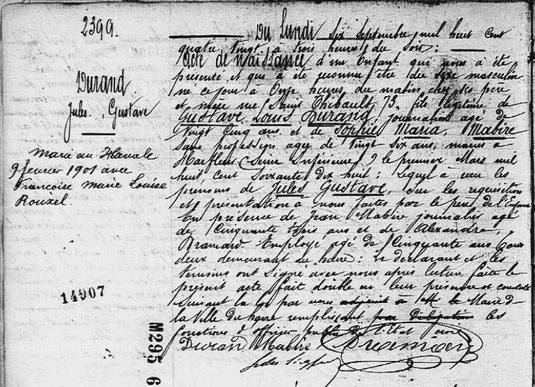 2399.
Durand
Jules, Gustave
Marié au Havre le
9 février 1901 avec
Françoise Marie Louise
Rouxel
14907
M295 6
Du Lundi six septembre mil huit cent
quatre vingt à trois heures du soir :
Acte de Naissance d'un Enfant qui nous a été
présenté et qui a été reconnu être du sexe masculin
né ce jour à Onze heures du matin, chez ses père
et mère rue Denis Thibault, 73, fils légitime de
Gustave Louis Durand, journalier âgé de
vingt cinq ans et de Sophie Maria Mabire
sans profession agée de vingt six ans, mariés à
Harfleur Seine Inférieure le premier Mars mil
huit cent soixante dix huit : lequel a reçu les
prénoms de Jules Gustave, Sur les réquisition
et présentation à nous faites par le père de l'Enfant
En présence de Jean Mabire journalier agé
de Cinquante trois ans et de Alexandre
Employé agé de Cinquante ans tous
deux demeurant au havre : le déclarant et les
témoins ont Signé avec nous après lecture faite le
présent acte fait double en leur présence et constaté
Suivant la loi par nous adjoint à Mr le Maire de
la Ville du havre remplissant par Délégation les
fonctions d'officier public de l'Etat civil
Duran Mabire